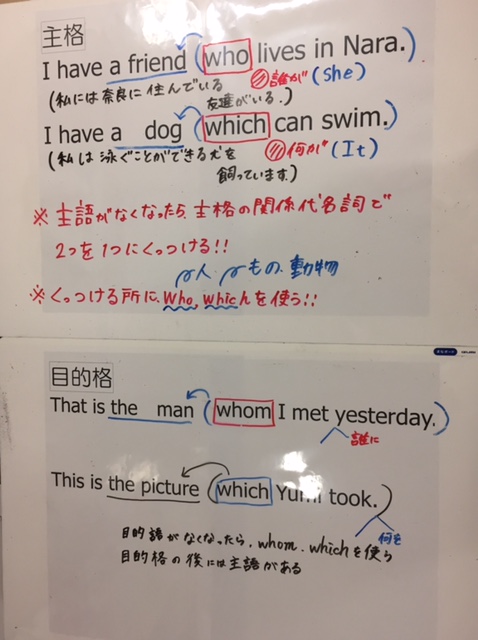 主格
I have a friend (who lives in Nara.)
㋱誰が (she)
(私には奈良に住んでいる
友達がいる.)
I have a dog (which can swim.)
㋱何が (It)
(私は泳ぐことができる犬を
飼っています.)
※主語がなくなったら、主格の関係代名詞で
2つを1つにくっつける!!
人 もの、動物
※くっつける所に、who, whichを使う!!
目的格
That is the man (whom I met yesterday.)
誰に
This is the picture (which Yumi took.)
何を
目的語がなくなったら、whom、whichを使う
目的格の後には主語がある